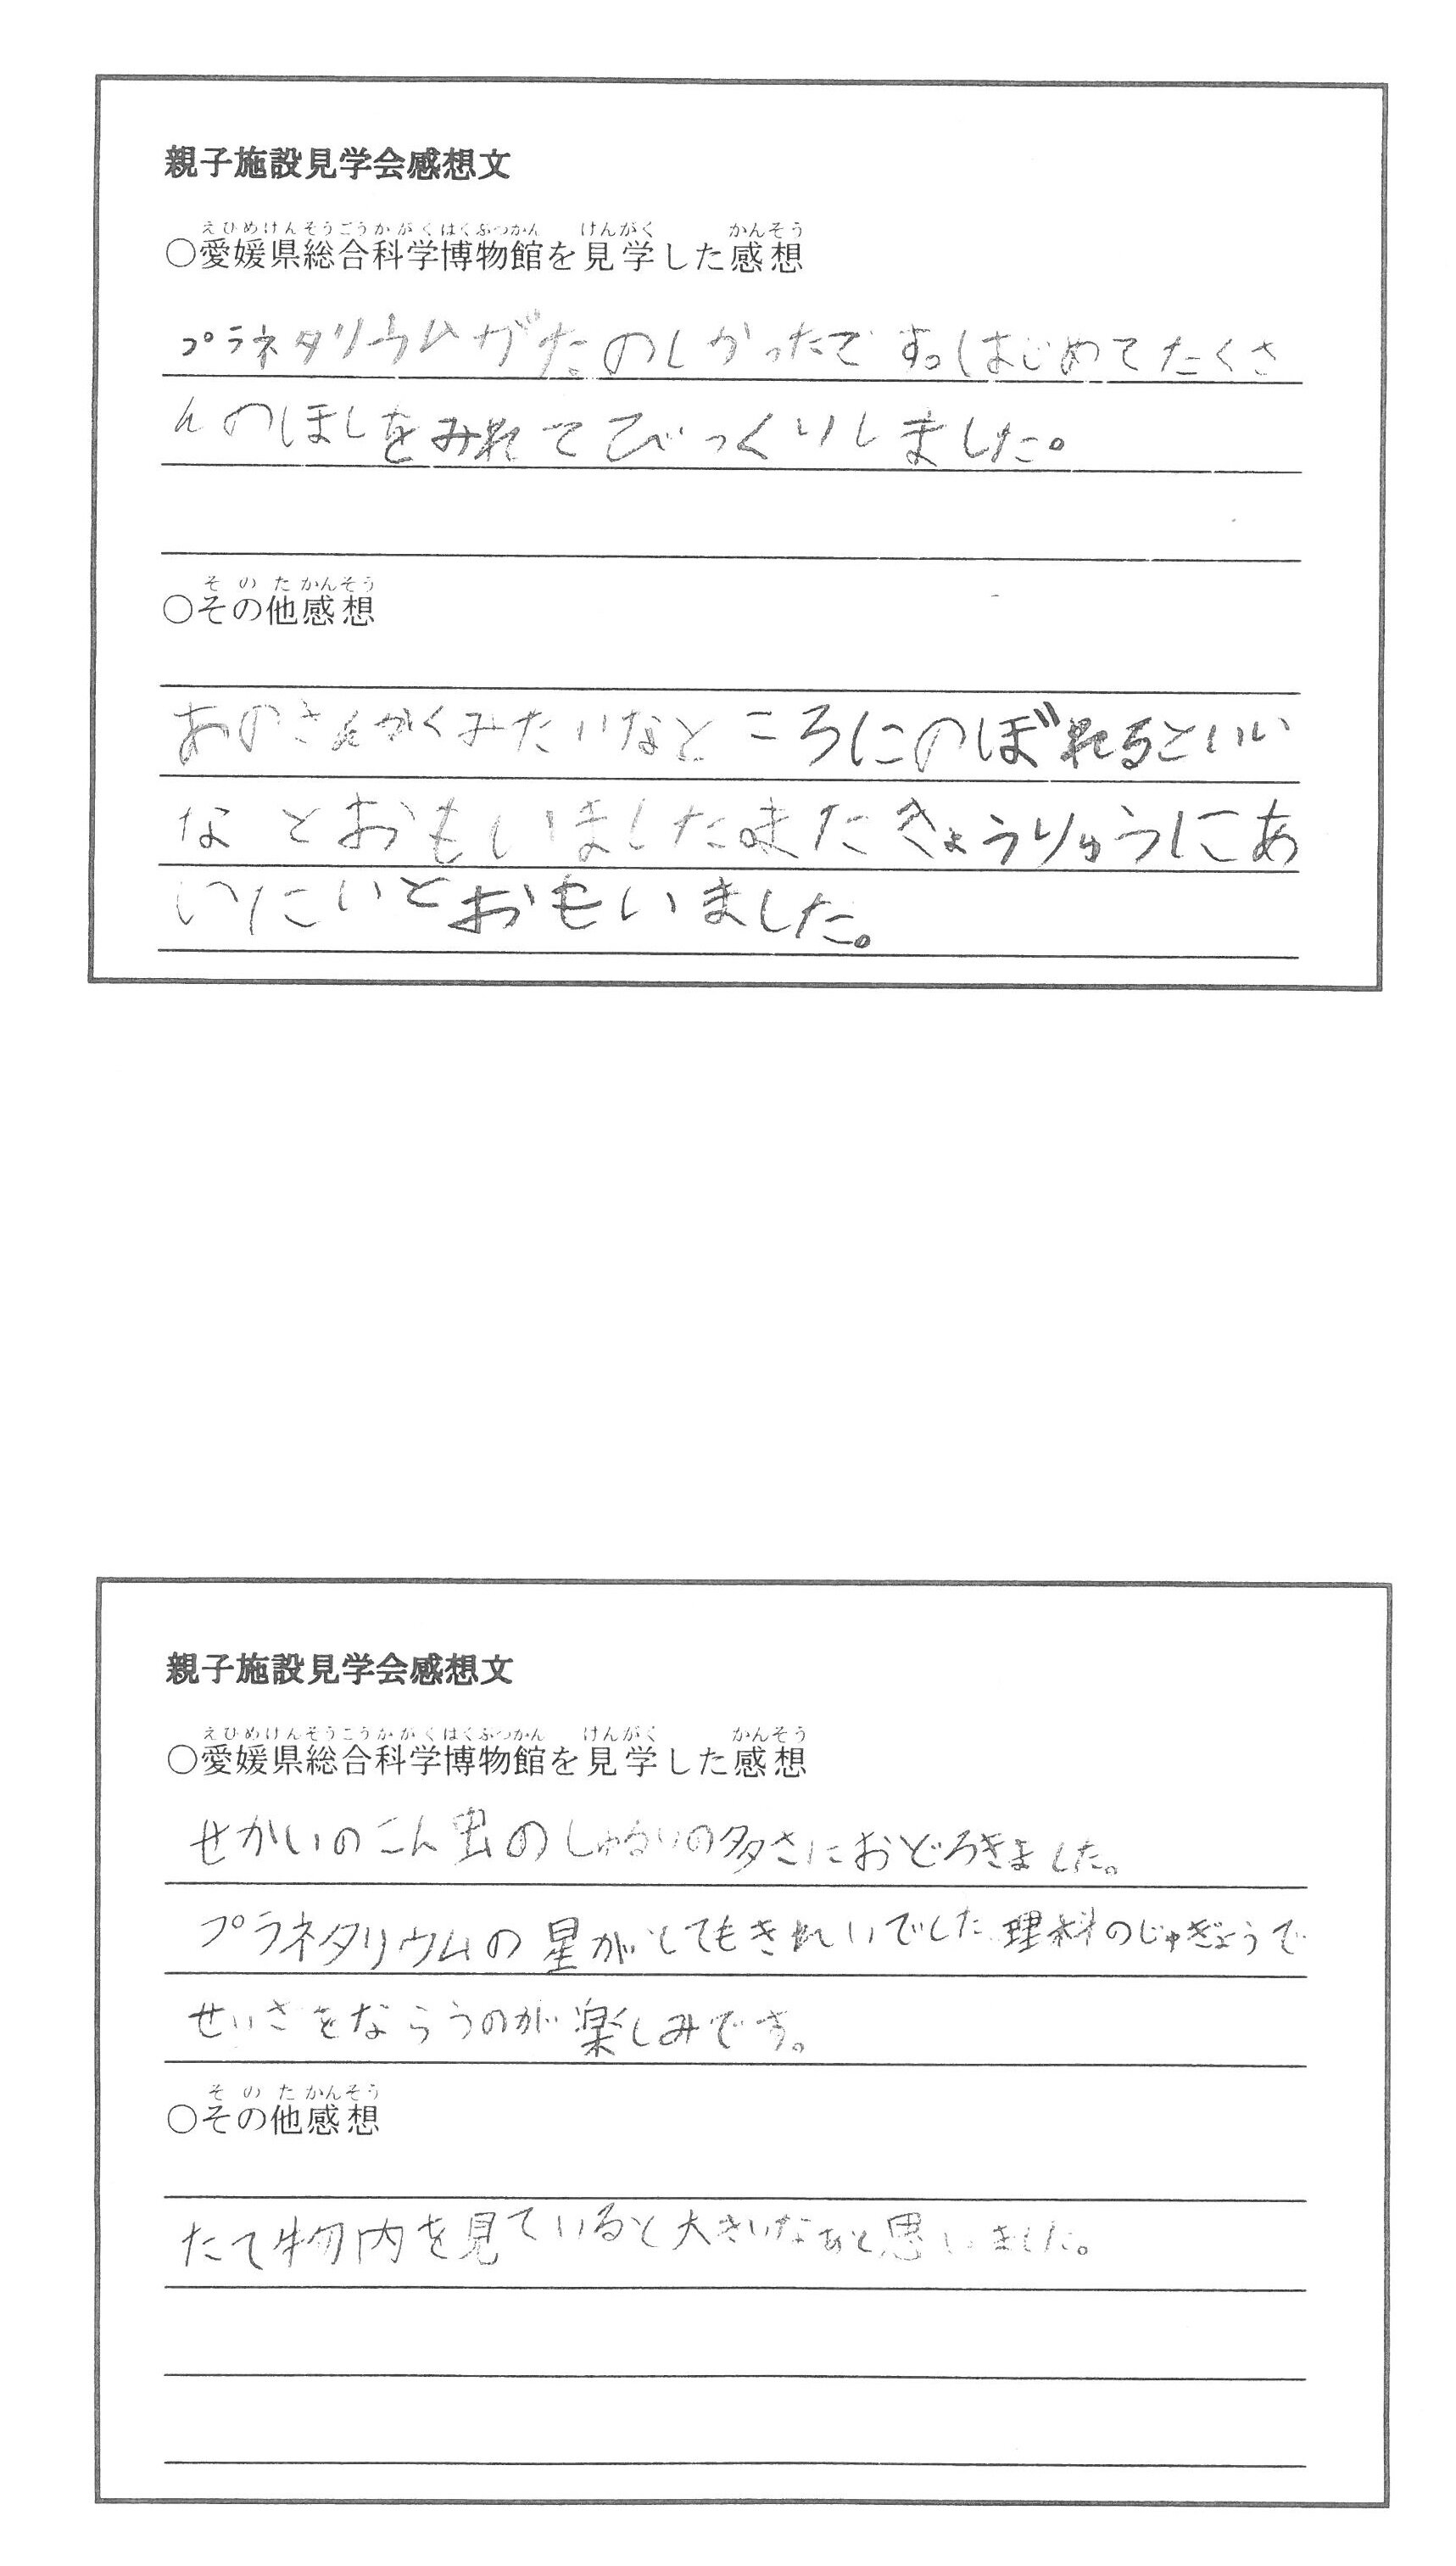 親子施設見学会感想文
えひめけんそうごうかがくはくぶつかん けんがく かんそう
○愛媛県総合科学博物館を見学した感想
プラネタリウムがたのしかったです。はじめてたくさ
んのほしをみれてびっくりしました。
そのたかんそう
○その他感想
あのさんかくみたいなところにのぼれるといい
なとおもいました。またきょうりゅうにあ
いたいとおもいました。
親子施設見学会感想文
えひめけんそうごうかがくはくぶつかん けんがく かんそう
○愛媛県総合科学博物館を見学した感想
せかいのこん虫のしゅるいの多さにおどろきました。
プラネタリウムの星がとてもきれいでした。理科のじゅぎょうで
せいざをならうのが楽しみです。
そのたかんそう
○その他感想
たて物内を見ていると大きいなあと思いました。